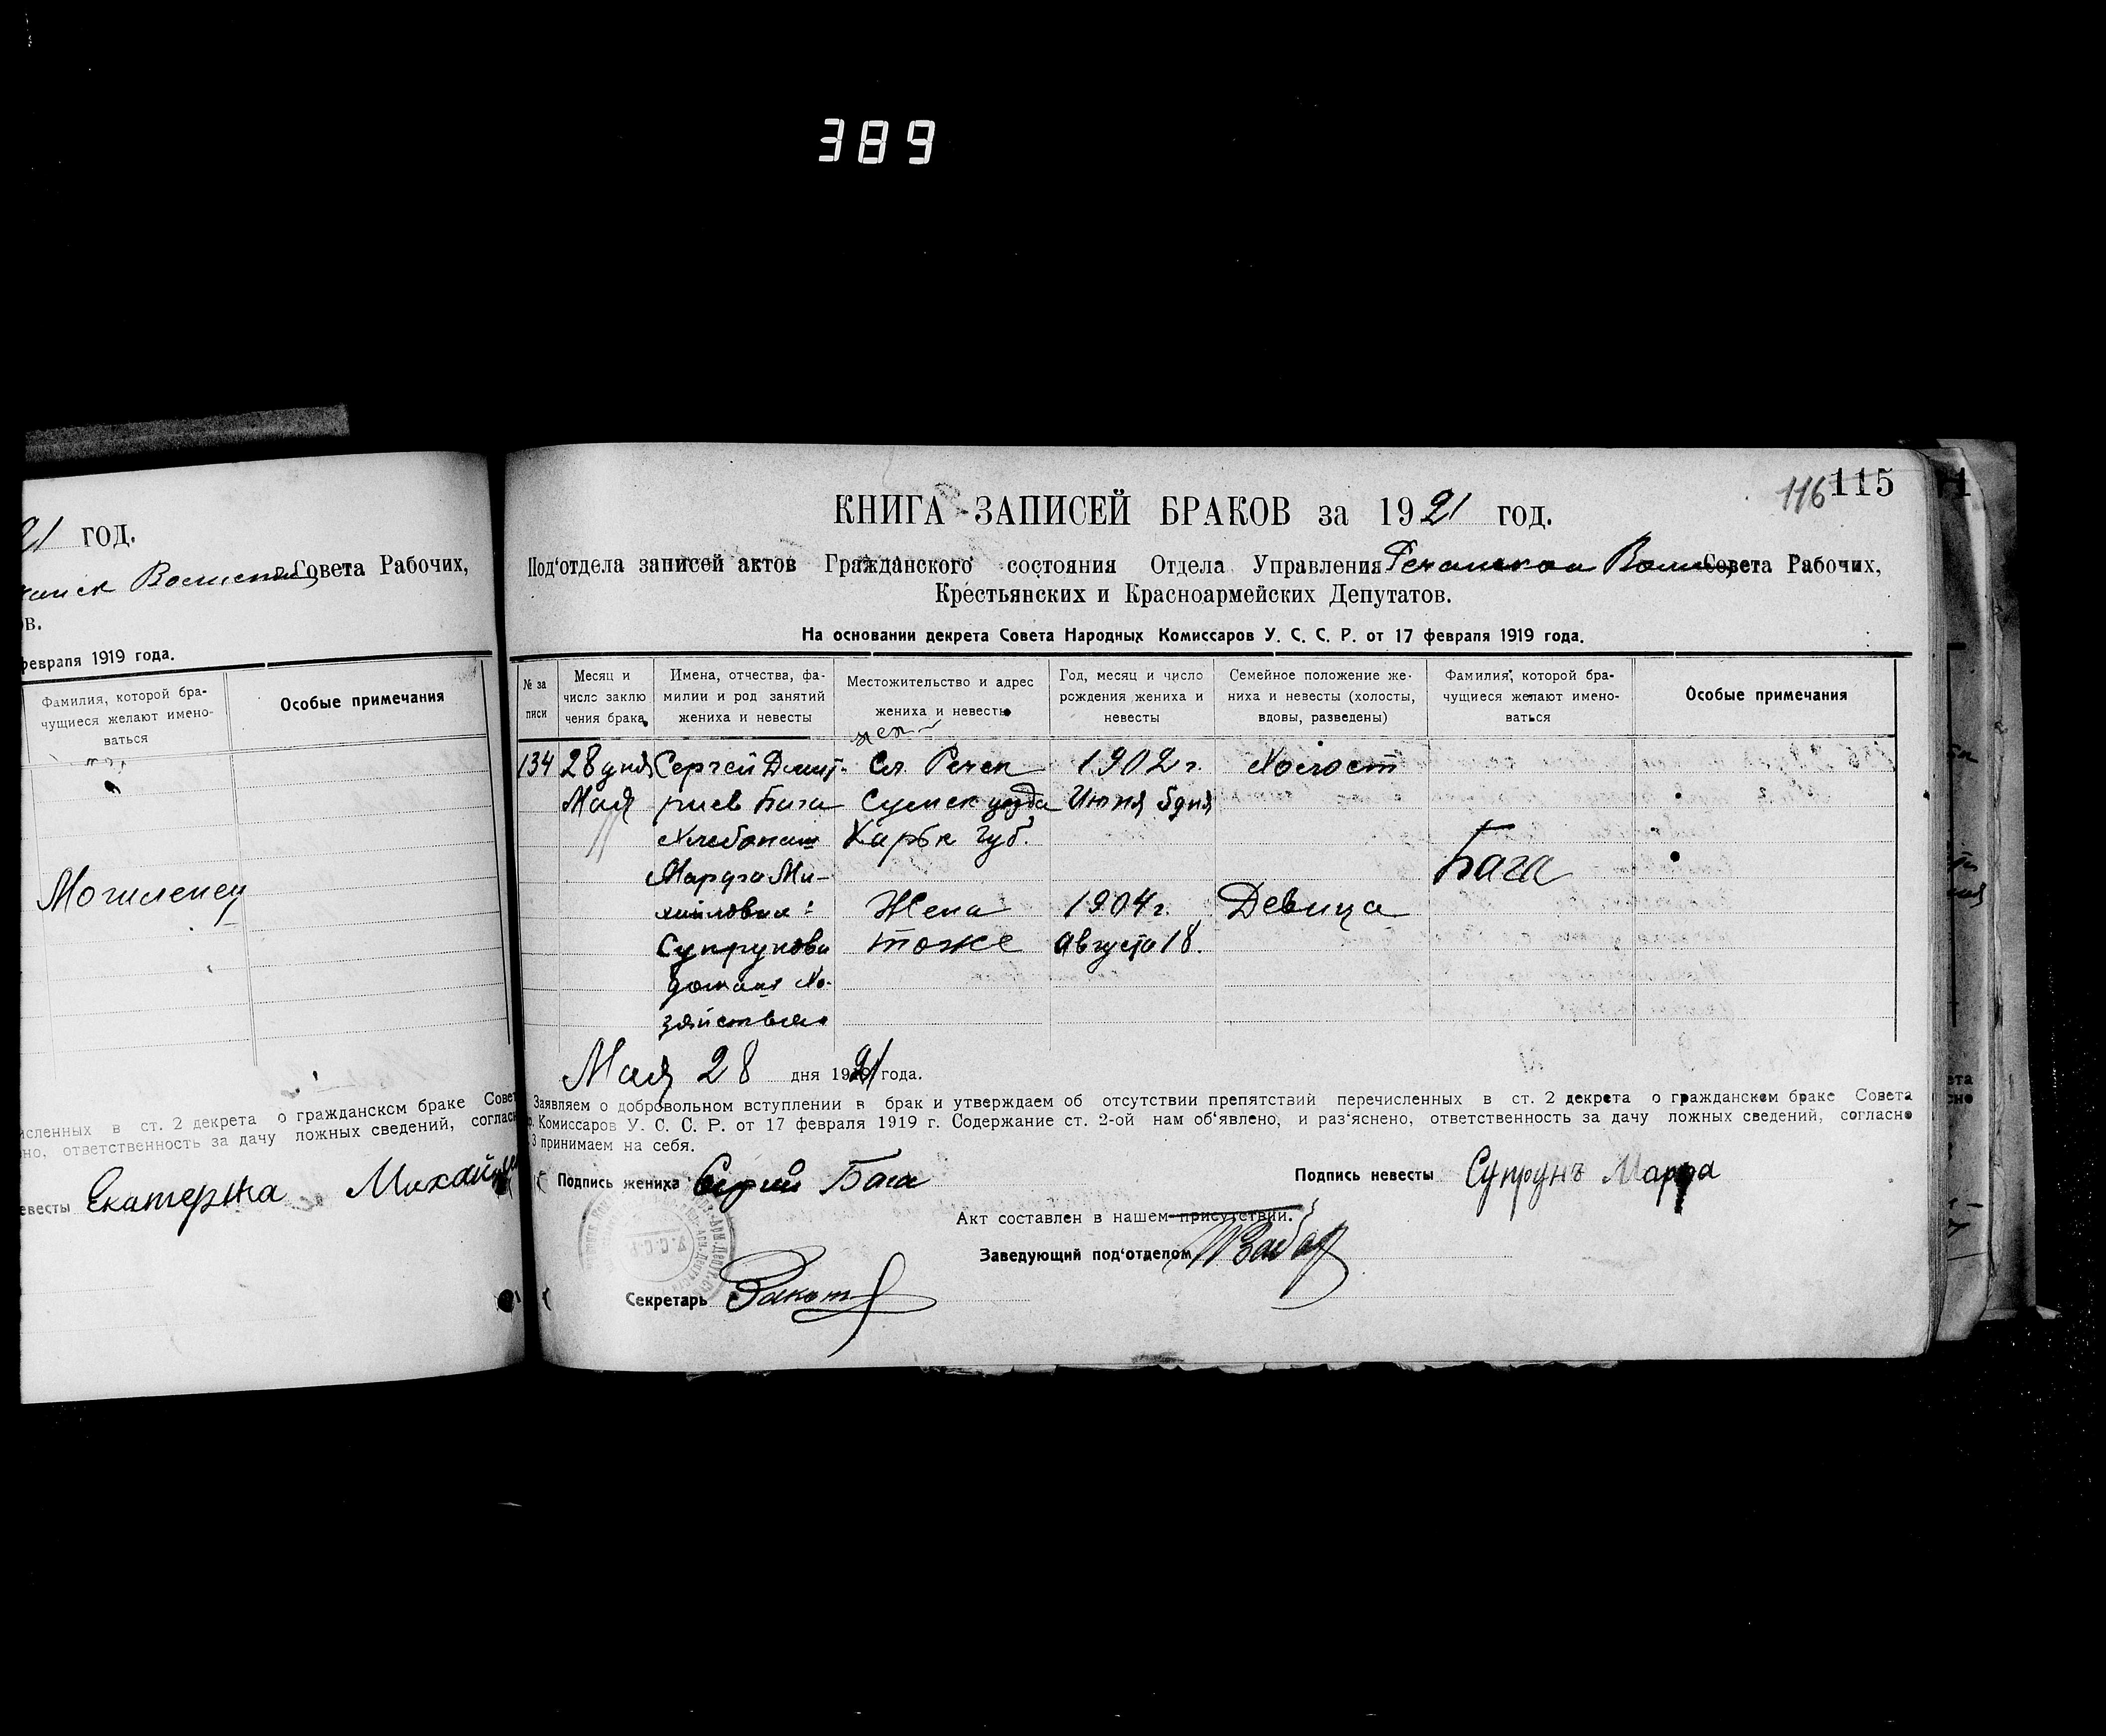 389
21 год.
Совета Рабочих,
ов.
февраля 1919 года.
Фамилия, которой бра-
чущиеся желают имено-
ваться
Особые примечания
Могиленец
исленных в ст. 2 декрета о гражданском браке Совет
но, ответственность за дачу ложных сведений, соглас
евесты Екатерина Михай
116 115
КНИГА ЗАПИСЕЙ БРАКОВ за 1921 год.
Под‘отдела записей актов Гражданского состояния Отдела Управления Совета Рабочих,
Крестьянских и Красноармейских Депутатов.
На основании декрета Совета Народных Комиссаров У. С. С. Р. от 17 февраля 1919 года.
№ за
писи
Месяц и
число заклю
чения брака
Имена, отчества, фа-
милии и род занятий
жениха и невесты
Местожительство и адрес
жениха и невесты
Год, месяц и число
рождения жениха и
невесты
Семейное положение же-
ниха и невесты (холосты,
вдовы, разведены)
Фамилия, которой бра-
чущиеся желают имено-
ваться
Особые примечания
134 28 дня Сергей Дмит- Сл Речек 1902 г. Холост
Мая риев Бага Сумск уезда Июня 5 дня
Хлебопаш Харьк губ.
Марфа Ми- Бага
хайловна Жена 1904 г. Девица
Супрунова тоже Августа 18.
домаш Хо-
зяйство
Мая 28 дня 1921 года.
Заявляем о добровольном вступлении в брак и утверждаем об отсутствии препятствий перечисленных в ст. 2 декрета о гражданском браке Совета
р. Комиссаров У. С. С. Р. от 17 февраля 1919 г. Содержание ст. 2-ой нам об‘явлено, и раз‘яснено, ответственность за дачу ложных сведений, согласно
3 принимаем на себя.
Подпись жениха Сергий Бага
Подпись невесты Супрунъ Марфа
Акт составлен в нашем присутствии.
Заведующий под‘отделом
Секретарь